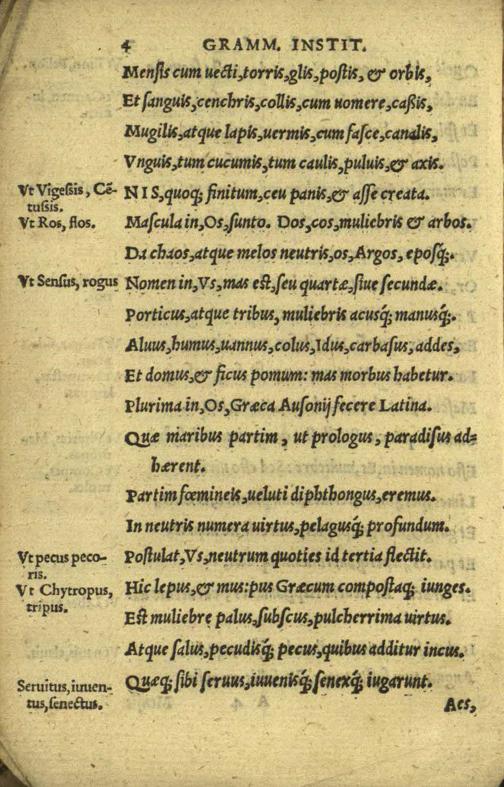 4 GRAMM. INSTIT.
Mensis cum uecti, torris, glis, postis, & orbis,
Et sanguis, cenchris, collis, cum uomere, caßis,
Mugilis, atque lapis, uermis, cum fasce, canalis,
Vnguis, tum cucumis, tum caulis, puluis, & axis.
Vt Vigeßis, Cē-
tussis.
NIS, quoq; finitum, ceu panis, & asse creata.
Vt Ros, flos.
Mascula in, Os, sunto. Dos, cos, muliebris & arbos.
Da chaos, atque melos neutris, os, Argos, eposq́;.
Vt Sensus, rogus
Nomen in, Vs, mas est, seu quartæ, siue secundæ.
Porticus, atque tribus, muliebris acusq́; manusq́;.
Aluus, humus, uannus, colus, Idus, carbasus, addes,
Et domus, & ficus pomum: mas morbus habetur.
Plurima in, Os, Græca Ausonij fecere Latina.
Quæ maribus partim, ut prologus, paradisus ad-
hærent.
Partim fœmineis, ueluti diphthongus, eremus.
In neutris numera uirtus, pelagusq́; profundum.
Vt pecus peco-
ris.
Postulat, Vs, neutrum quoties id tertia flectit.
Vt Chytropus,
tripus.
Hic lepus, & mus: pus Græcum compostaq́; iunges.
Est muliebre palus, subscus, pulcherrima uirtus.
Atque salus, pecudisq́; pecus, quibus additur incus.
Seruitus, iuuen-
tus, senectus.
Quæq; sibi seruus, iuuenisq́; senexq́; iugarunt.
Aes,